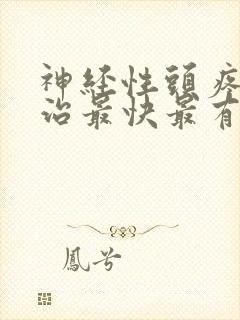 神经性頭疼
治最快最有
鳳兮